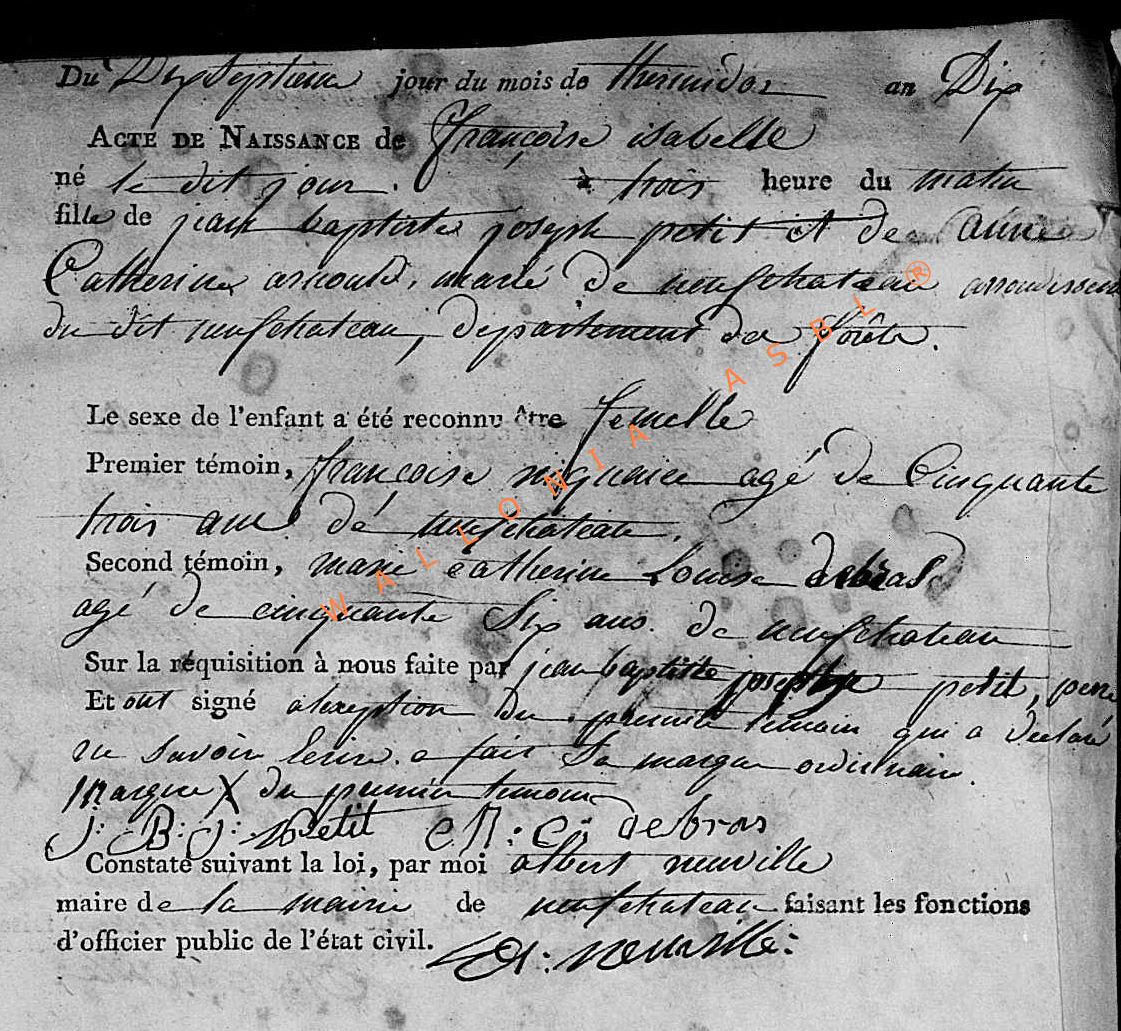 Du Dix Septieme jour du mois de thermidor an Dix
ACTE DE NAISSANCE de françoise isabelle
né le dit jour. à trois heure du matin
fille de jean baptiste joseph petit et de anne
Catherine arnould, marié de neufchateau arrondissem
du dit neufchateau, departement des forêts.
Le sexe de l'enfant a été reconnu être femelle
Premier témoin, francoise agé de Cinquante
trois ans de neufchateau.
Second témoin, marie catherine Louise debras
agé de cinquante Six ans de neufchateau
Sur la réquisition à nous faite par jean baptiste joseph petit, pere
Et ont signé a lexeption du premier temoin qui a declaré
ne savoir lecrire a fait Sa marque ordinaire.
Marque X du premier temoin
J: B: J: Petit C: debras
Constaté suivant la loi, par moi albert neuville
maire de la mairie de neufchateau faisant les fonctions
d'officier public de l'état civil. A: neuville:
WALLONIA ASBL ®